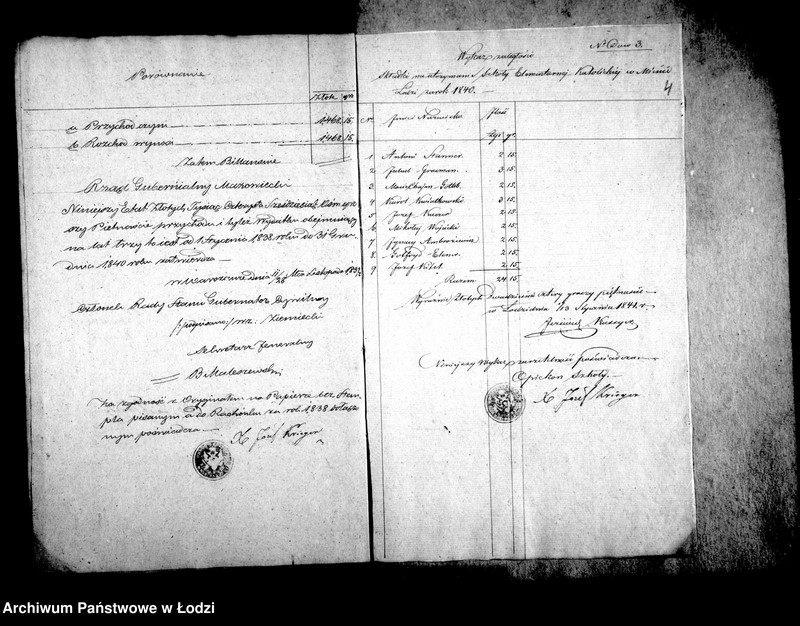 Porównanie
Złote gr.
a Przychód czyni 1,468 15.
b Rozchód wynosi 1,468 15.
Zatem Billansuie
Rząd Gubernialny Mazowiecki
Niniejszy Etat Złotych Tysiąc Czterysta Sześćdziesiąt Ośm gro
szy Piętnaście przychodu i tyleż wydatku obejmujący
na lat trzy to iest od 1 Stycznia 1838 roku do 31 Gru
dnia 1840 roku zatwierdza
w Warszawie dnia Mca Listopada
Członek Rady Stanu Gubernator Cywilny
(podpisano) wz. Ziemiecki
Sekretarz Jeneralny
B Maleszewski
Za zgodność z Oryginałem na Papierze bez Stem
pla pisanym a do Rachunku za rok 1838 dołączo
nym poświadcza
X Józef Krieger
N Dow 3.
4
Wykaz zaległości
Składki na utrzymanie Szkoły Elementarnej Katolickiej w Mieście
Łodzi za rok 1840.
No Imie i Nazwisko
Złp. gr.
1 Antoni 2 15.
2 Juliusz 3 15.
3 Gottlib 2 15.
4 Karol Kwiatkowski 3 15.
5 Józef 2 15.
6 Mikołaj Wojacki 2 15.
7 Ignacy Ambroziewicz 2 15.
8 Gotfryd 2 15.
9 Józef 2 15.
Razem 24 15.
Wyraźnie Złotych dwadzieścia cztery groszy piętnaście
w Łodzi dnia 13 Stycznia 1841 r.
Niniejszy wykaz za rzetelność poświadcza
Opiekun Szkoły
X Józef Krieger
Archiwum Państwowe w Łodzi